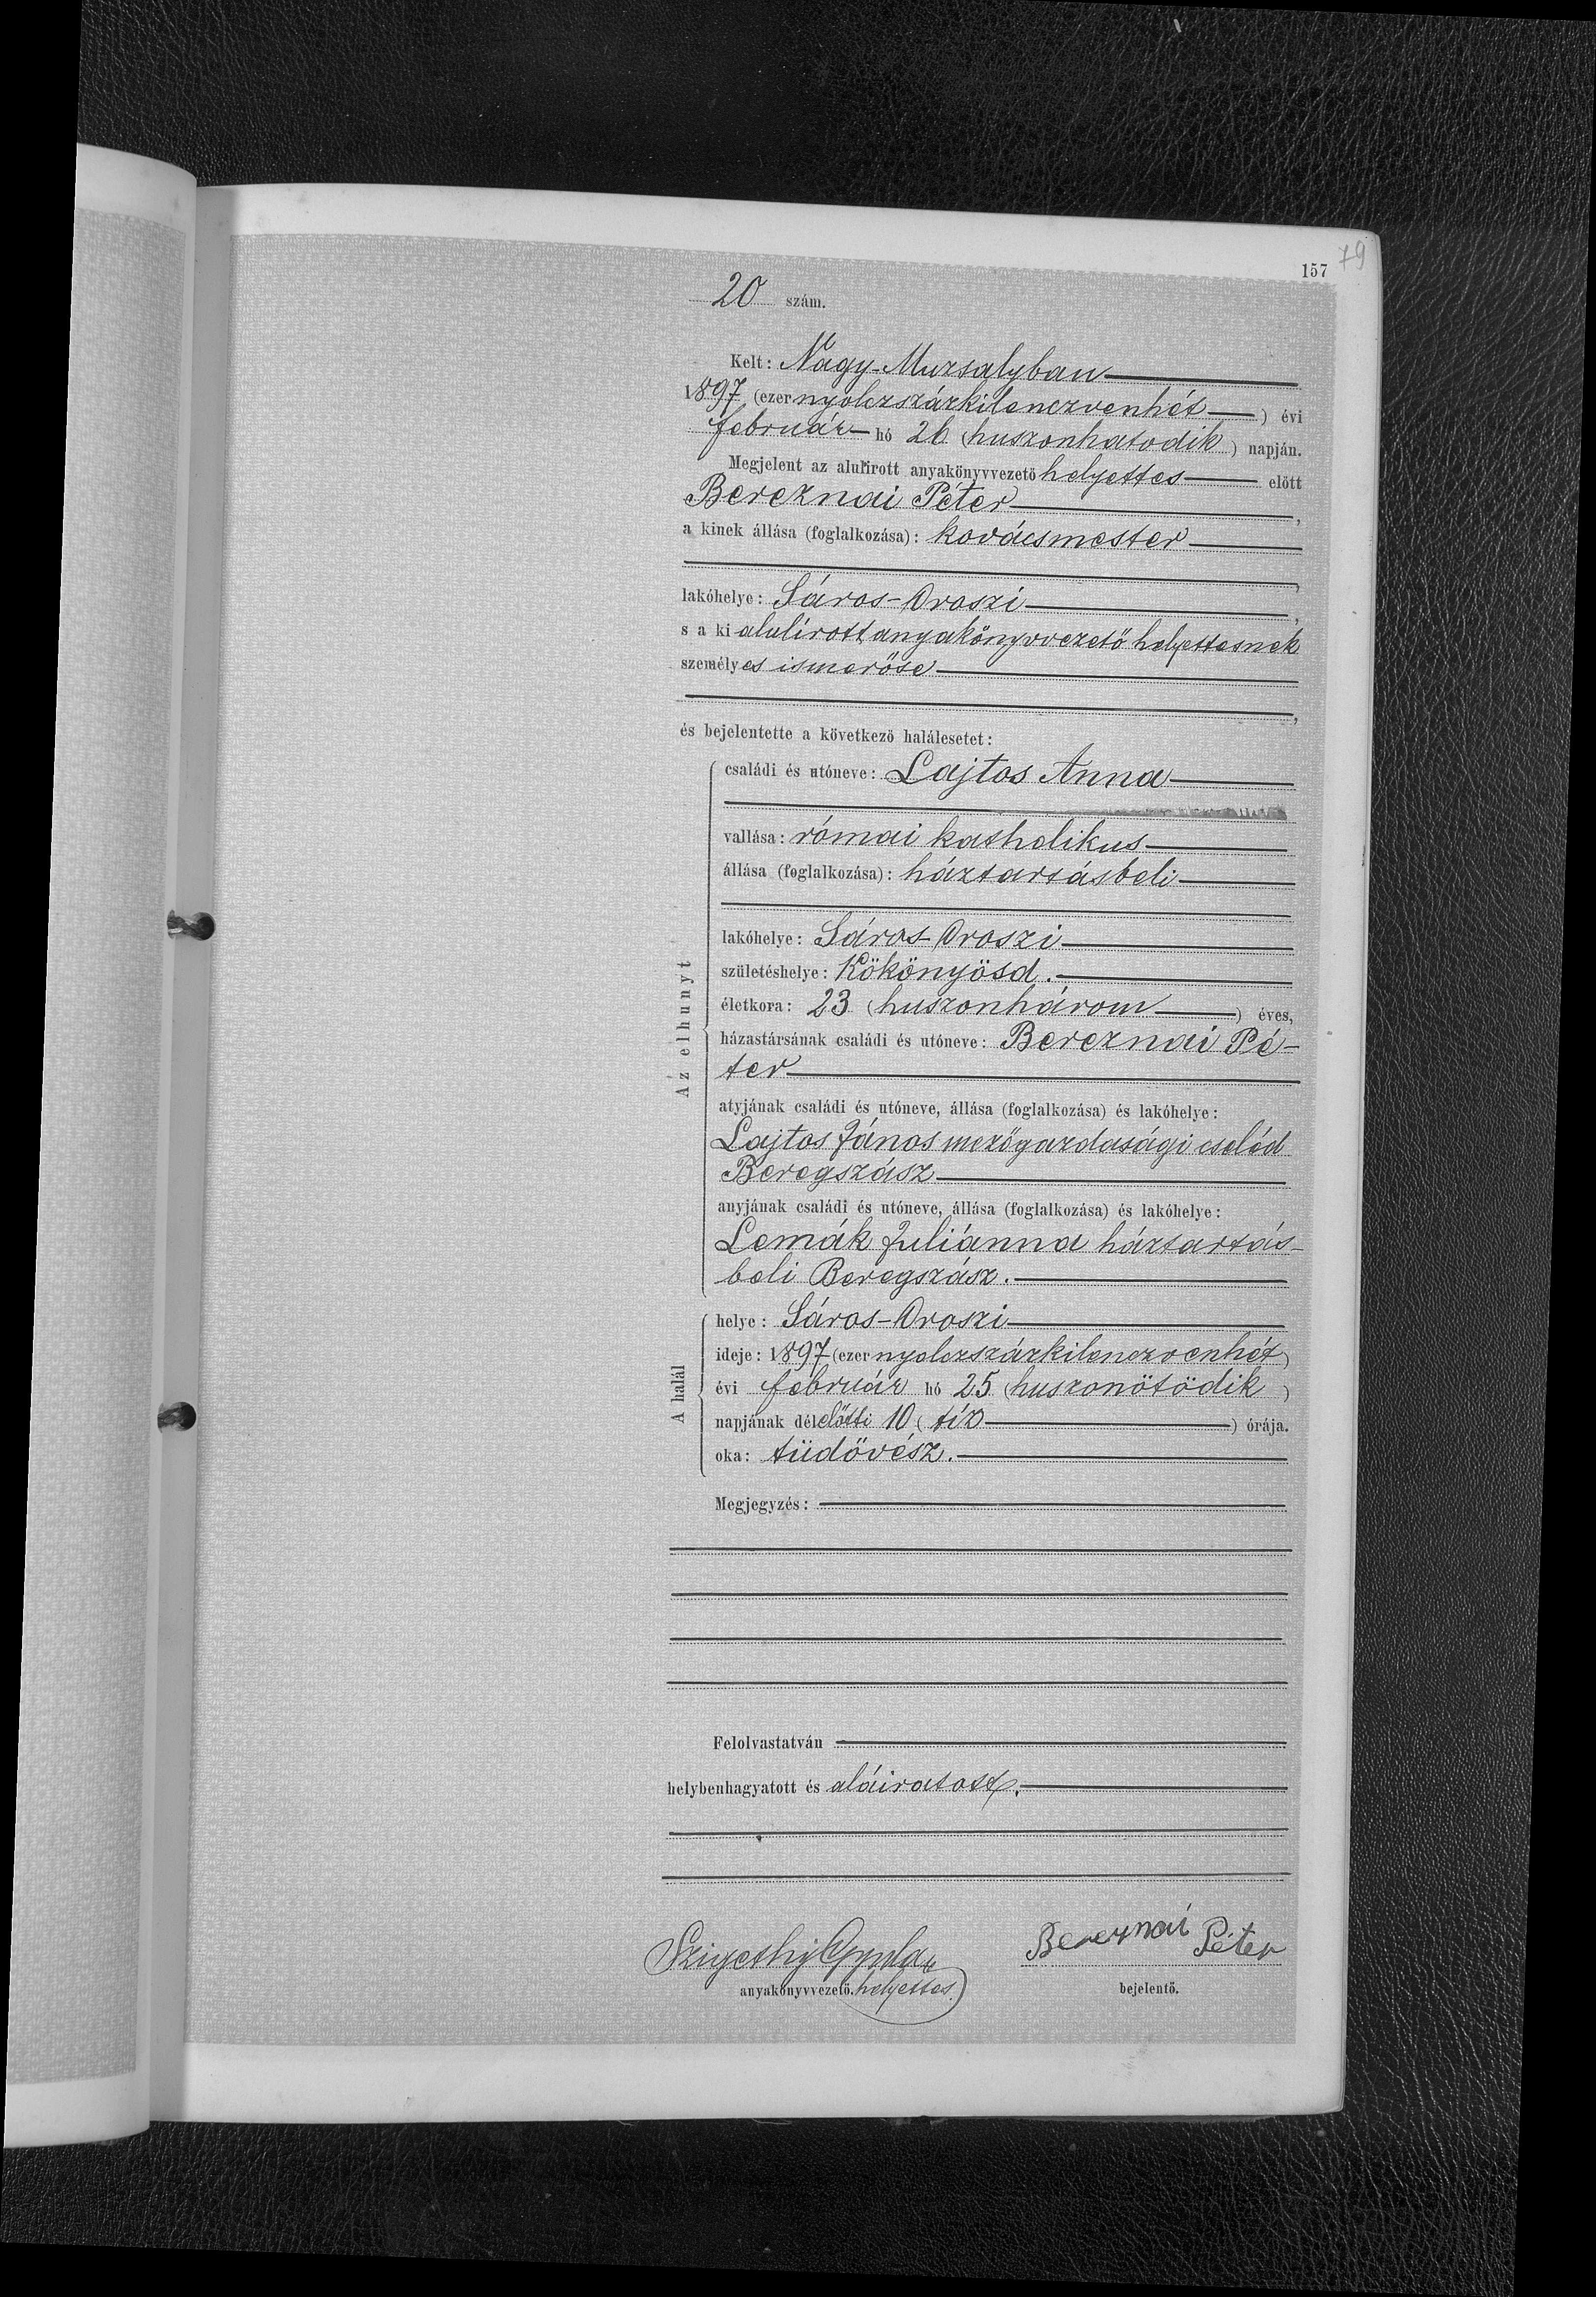 157
79
20 szám.
Kelt: Nagy-Muzsalyban
1897 (ezer nyolczszázkilenczvenhét) évi
február hó 26 (huszonhatodik) napján.
Megjelent az alulirott anyakönyvvezető helyettes előtt
Bereznai Péter,
a kinek állása (foglalkozása): kovácsmester
,
lakóhelye: Sáros-Oroszi,
s a ki alulírott anyakönyvvezető helyettesnek
személyes ismerőse
,
és bejelentette a következő halálesetet:
Az elhunyt
családi és utóneve: Lajtos Anna
vallása: római katholikus
állása (foglalkozása): háztartásbeli
lakóhelye: Sáros-Oroszi
születéshelye: Kökönyösd.
életkora: 23 (huszonhárom) éves,
házastársának családi és utóneve: Bereznai Pé-
ter
atyjának családi és utóneve, állása (foglalkozása) és lakóhelye:
Lajtos János mezőgazdasági cseléd
Beregszász
anyjának családi és utóneve, állása (foglalkozása) és lakóhelye:
Lemák Juliánna háztartás-
beli Beregszász.
A halál
helye: Sáros-Oroszi
ideje: 1897 (ezer nyolczszázkilenczvenhét)
évi február hó 25 (huszonötödik)
napjának délelőtti 10 (tíz) órája.
oka: tüdővész.
Megjegyzés:
Felolvastatván
helybenhagyatott és aláiratott.
Szigethy Gyula Bereznai Péter
anyakönyvvezető. helyettes. bejelentő.